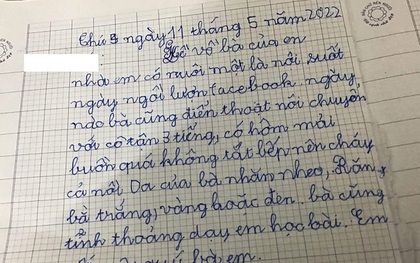 Thứ 3 ngày 11 tháng 5 năm 2022
kể về bà của em
nhà em có nuôi một bà nội suốt
ngày ngồi lươn facebook. ngày
nào bà cũng điển thoát nói chuyển
với cô tận 3 tiếng, có hôm mải
buôn quá không tắt bếp nên cháy
cả nồi, Da của bà nhăn nheo, Răng
bà trắng, vàng hoặc đen. bà cũng
tỉnh thoảng dạy em học bài. Em
bà em.